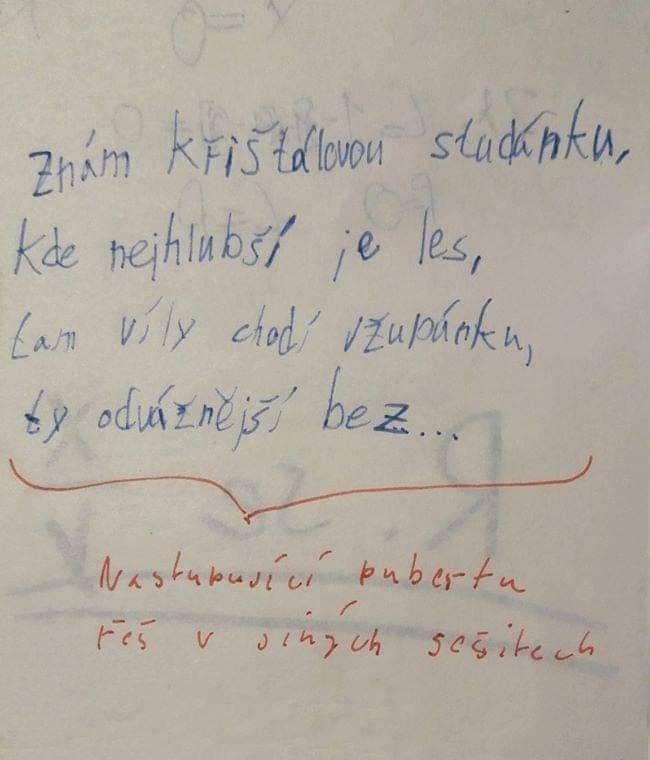 znám křišťálovou studánku,
kde nejhlubší je les,
tam víly chodí vžupánku,
ty odvážnější bez...
Nastupující pubertu
řeš v jiných sešitech